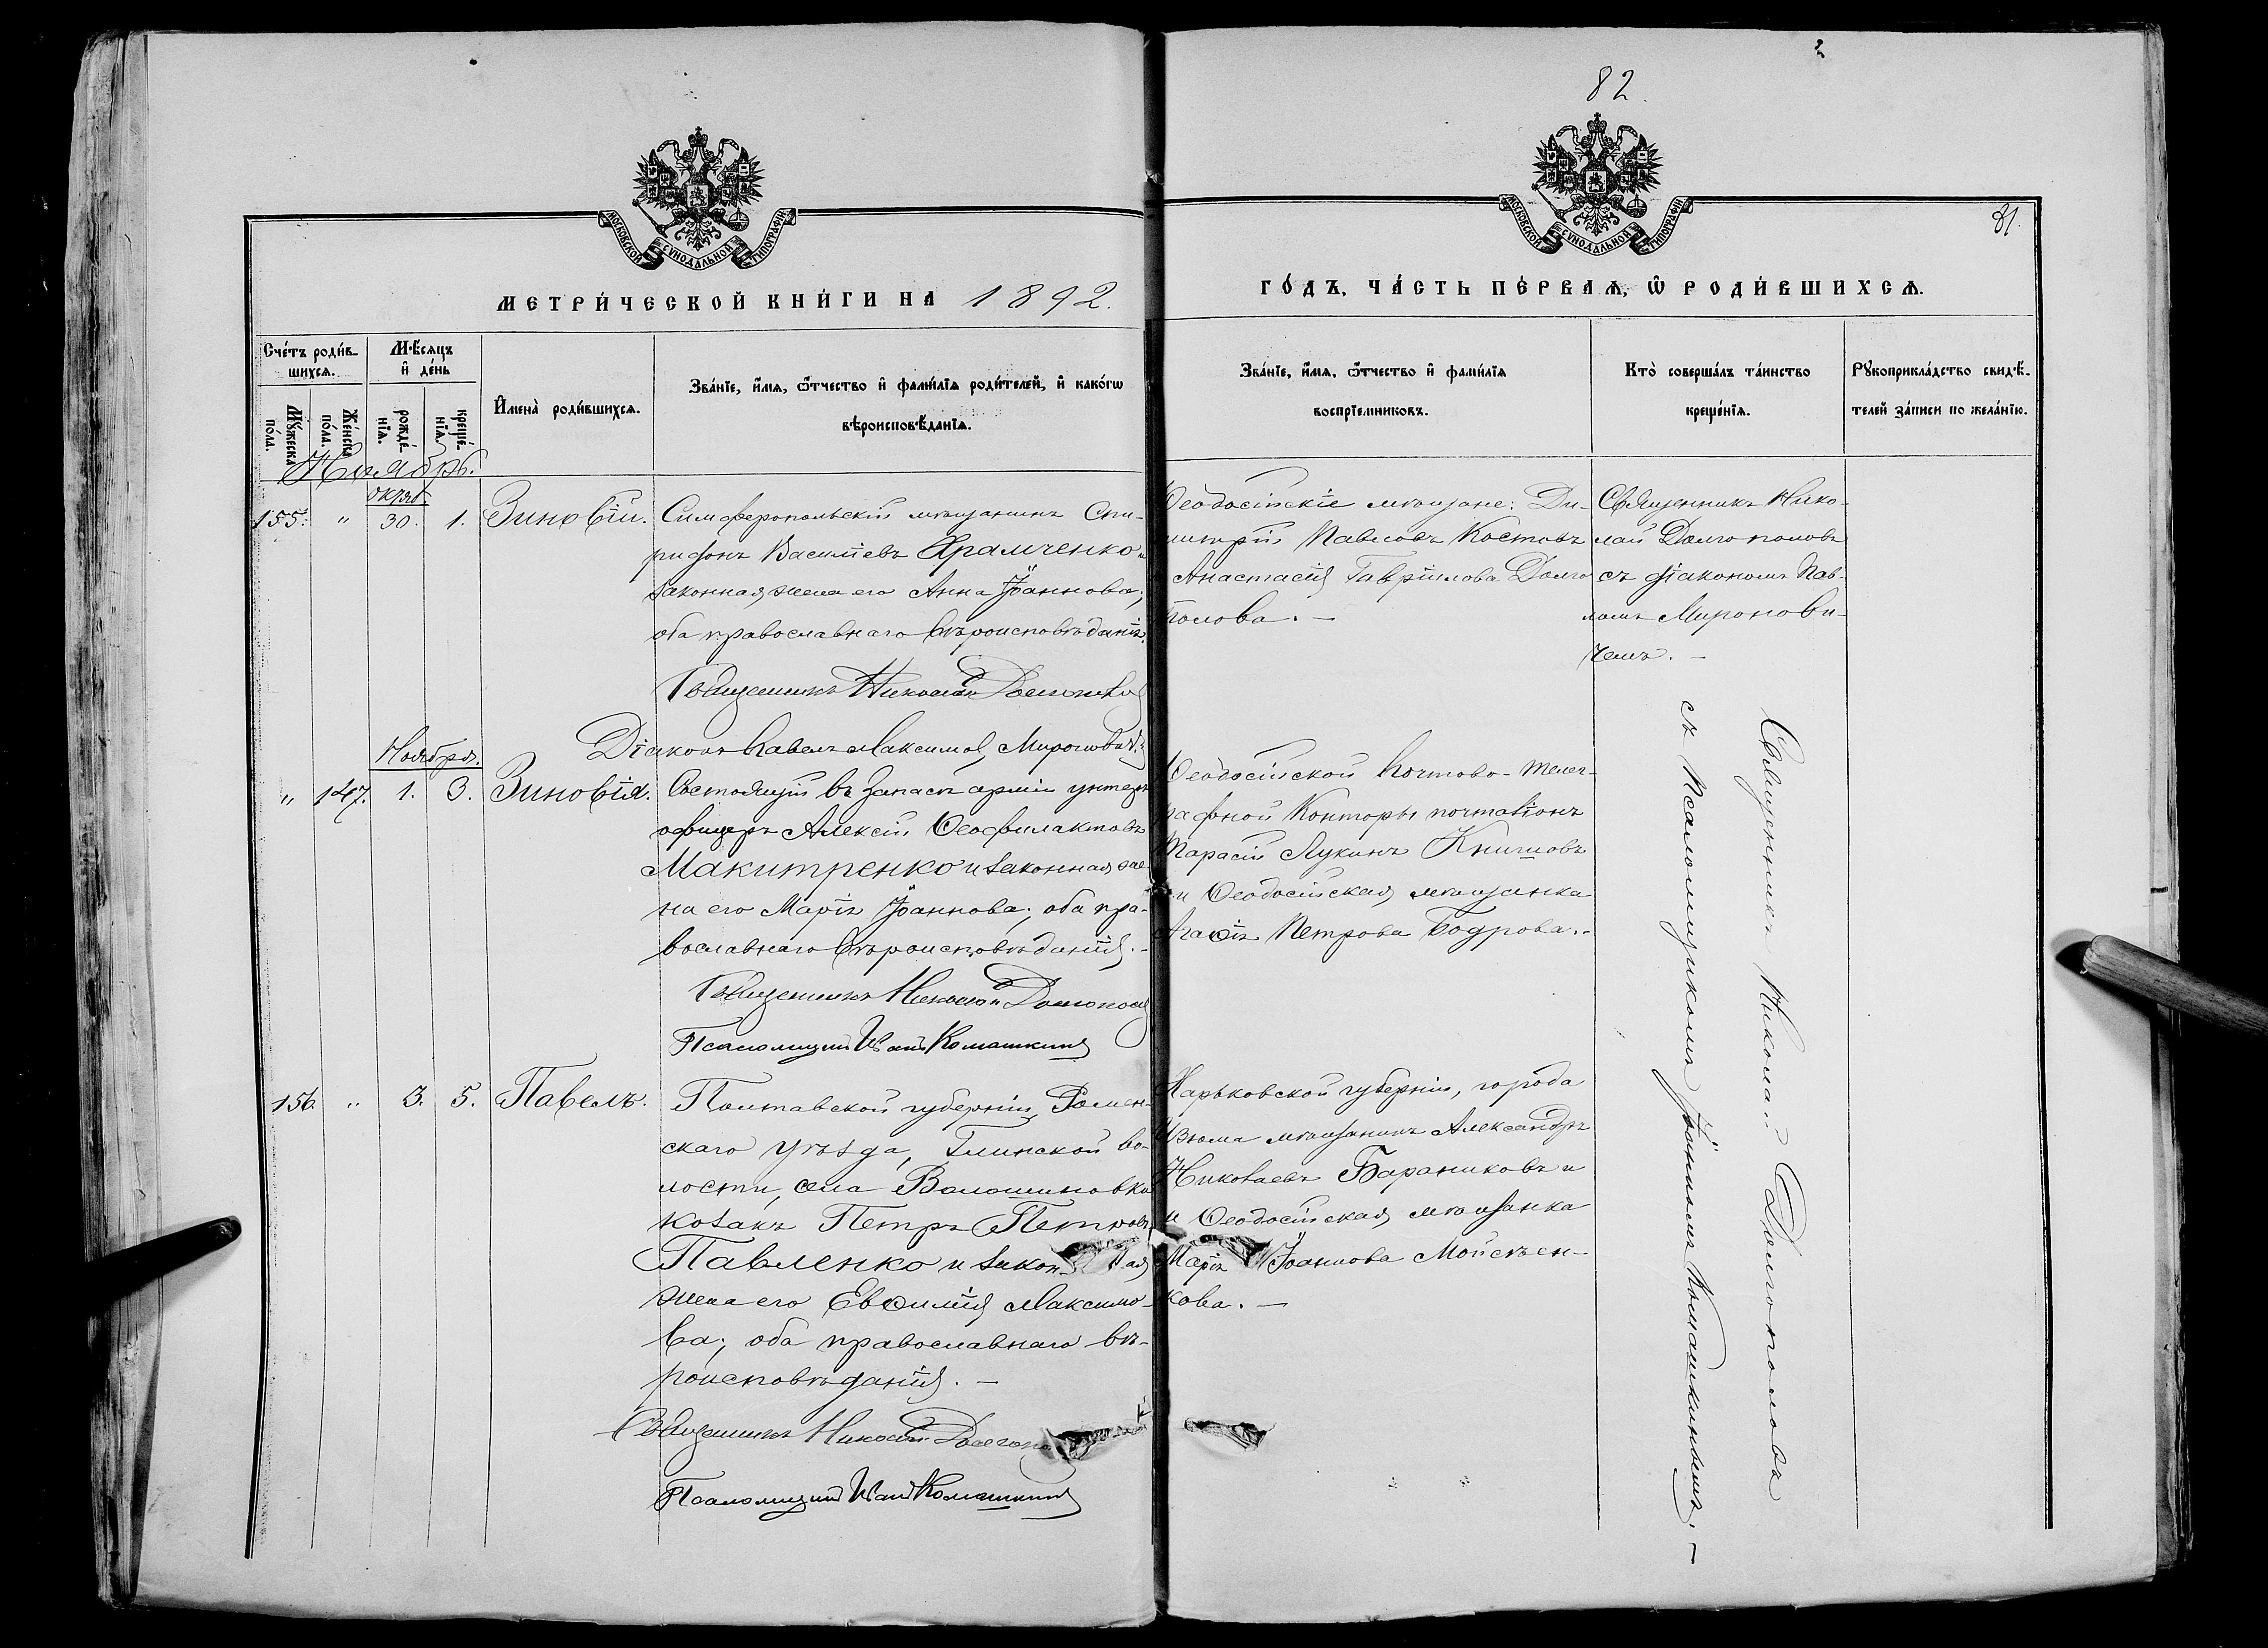 82.
МОСКОВСКОЙ СѴНОДАЛЬНОЙ ТИПОГРАФІИ
МОСКОВСКОЙ СѴНОДАЛЬНОЙ ТИПОГРАФІИ
81.
МЕТРИ́ЧЕСКОЙ КНИ́ГИ НА 1892.
ГО́ДЪ, ЧА́СТЬ ПЕ́РВАѦ, Ѿ РОДИ́ВШИХСѦ.
Сче́тъ роди́в-
шихсѧ.
Мѣ́сѧцъ
и҆ де́нь
Мꙋ́жеска
по́ла.
Же́нска
по́ла.
рожде́-
нїѧ.
креще́-
нїѧ.
И҆мена̀ роди́вшихсѧ.
Зва́нїе, и҆́мѧ, ѻ҆́тчество и҆ фами́лїѧ роди́телей, и҆ како́гѡ
вѣроисповѣ́данїѧ.
Зва́нїе, и҆́мѧ, ѻ҆́тчество и҆ фами́лїѧ
воспрїе́мниковъ.
Кто̀ соверша́лъ та́инство
креще́нїѧ.
Рꙋкоприкла́дство свидѣ́-
телей за́писи по жела́нїю.
Ноябрь.
октяб.
155. " 30. 1. Зиновій.
Симферопольскій мѣщанинъ Спи-
ридонъ Василіевъ Храмченко и
законная жена его Анна Іоаннова,
оба православнаго вѣроисповѣданія.
Священникъ Николай Долгополовъ
Діаконъ Павелъ Максимов Мироновичъ
Ѳеодосійскіе мѣщане: Ди-
митрій Павловъ Костовъ
Анастасія Гавріилова Долго
полова. —
Священникъ Нико-
лай Долгополовъ
съ діакономъ Пав-
ломъ Миронови-
чемъ. —
Ноября.
" 147. 1. 3. Зиновія.
Состоящій въ запасѣ арміи унтеръ
офицеръ Алексій Ѳеофилактовъ
Макитренко и законная же-
на его Марія Іоаннова; оба пра-
вославнаго вѣроисповѣданія. -
Священникъ Николай Долгополов
Псаломщик Иван Комашкин
Ѳеодосійской почтово-телег-
рафной Конторы почталіонъ
Тарасій Лукинъ Книшовъ
и Ѳеодосійская мѣщанка
Агаѳія Петрова Бодрова. -
156. " 3. 5. Павелъ.
Полтавской губерніи, Ромен-
скаго уѣзда, Глинской во-
лости, села Волошиновки
козакъ Петръ Петровъ
Павленко и законная
жена его Евѳимія Максимо-
ва; оба православнаго вѣ-
роисповѣданія. —
Священникъ Николай Долгопо
Псаломщик Иван Комашкин
Харьковской губерніи, города
Изюма мѣщанинъ Александръ
Николаевъ Бараниковъ и
и Ѳеодосійская мѣщанка
Марія Іоаннова Мойсѣен-
кова. —
Священникъ Николай Долгополовъ
съ Псаломщикомъ Іоанномъ Комашкинымъ. —